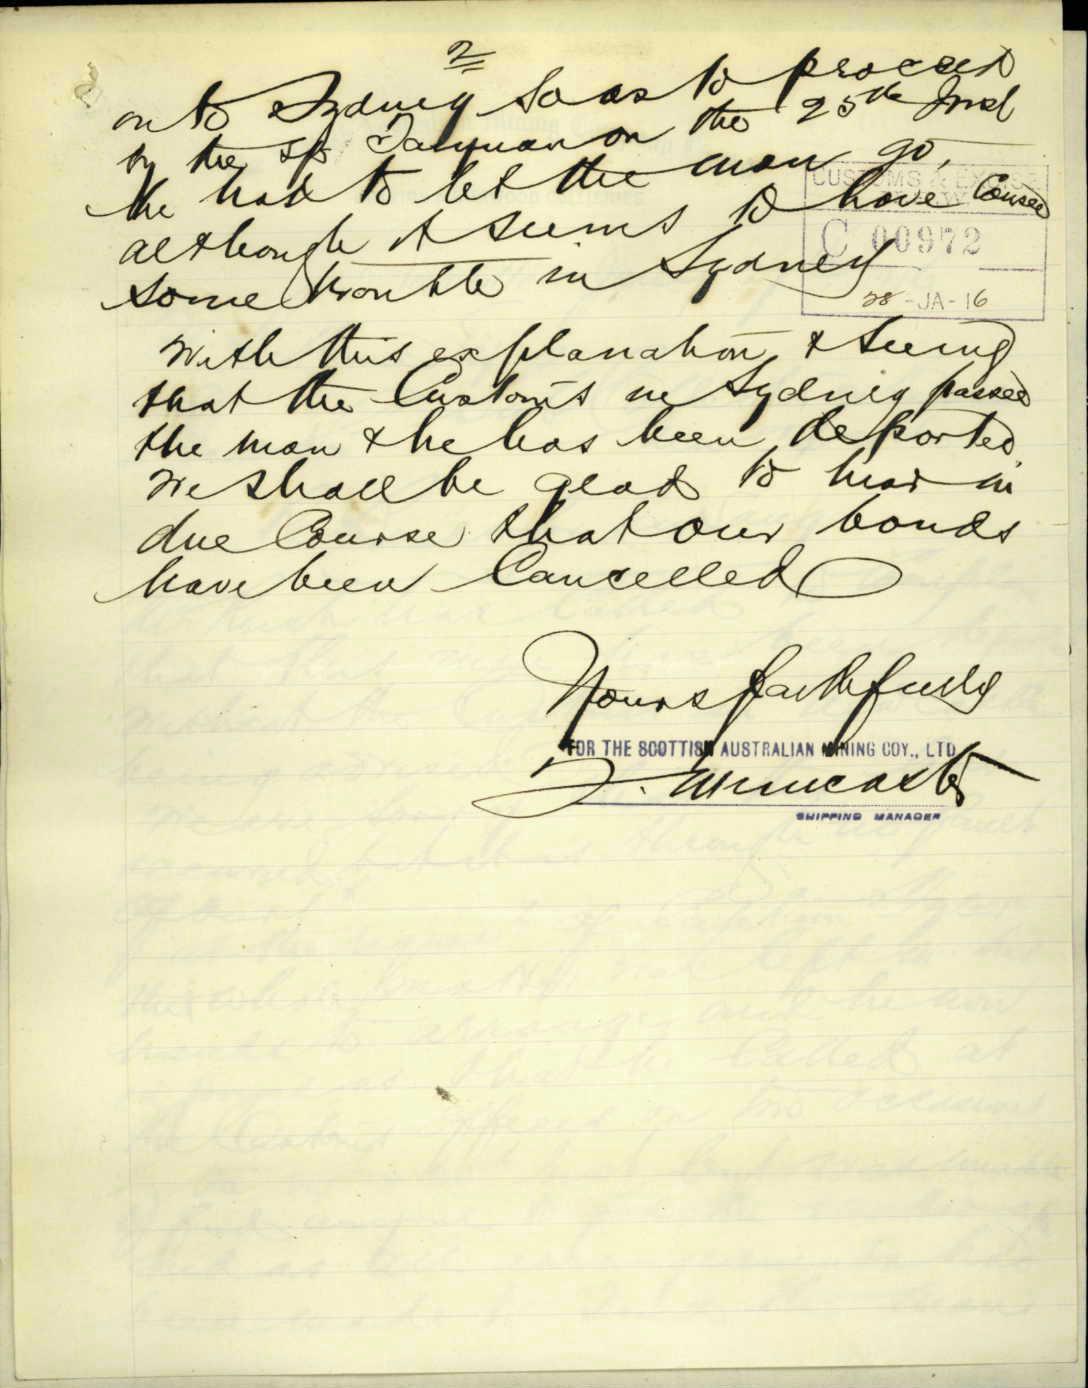 2
on to Sydney so as to proceed
by the SS Taiyuan on the 25th Inst
he had to let the man go,
although it seems to have caused
some trouble in Sydney
CUSTOMS & EXCISE
C 00972
28 -JA- 16
With this explanation, & seeing
that the Customs in Sydney passed
the man & he has been deported
we shall be glad to hear in
due Course that our bonds
have been Cancelled
Yours faithfully
FOR THE SCOTTISH AUSTRALIAN MINING COY., LTD
J. Muncaster
SHIPPING MANAGER